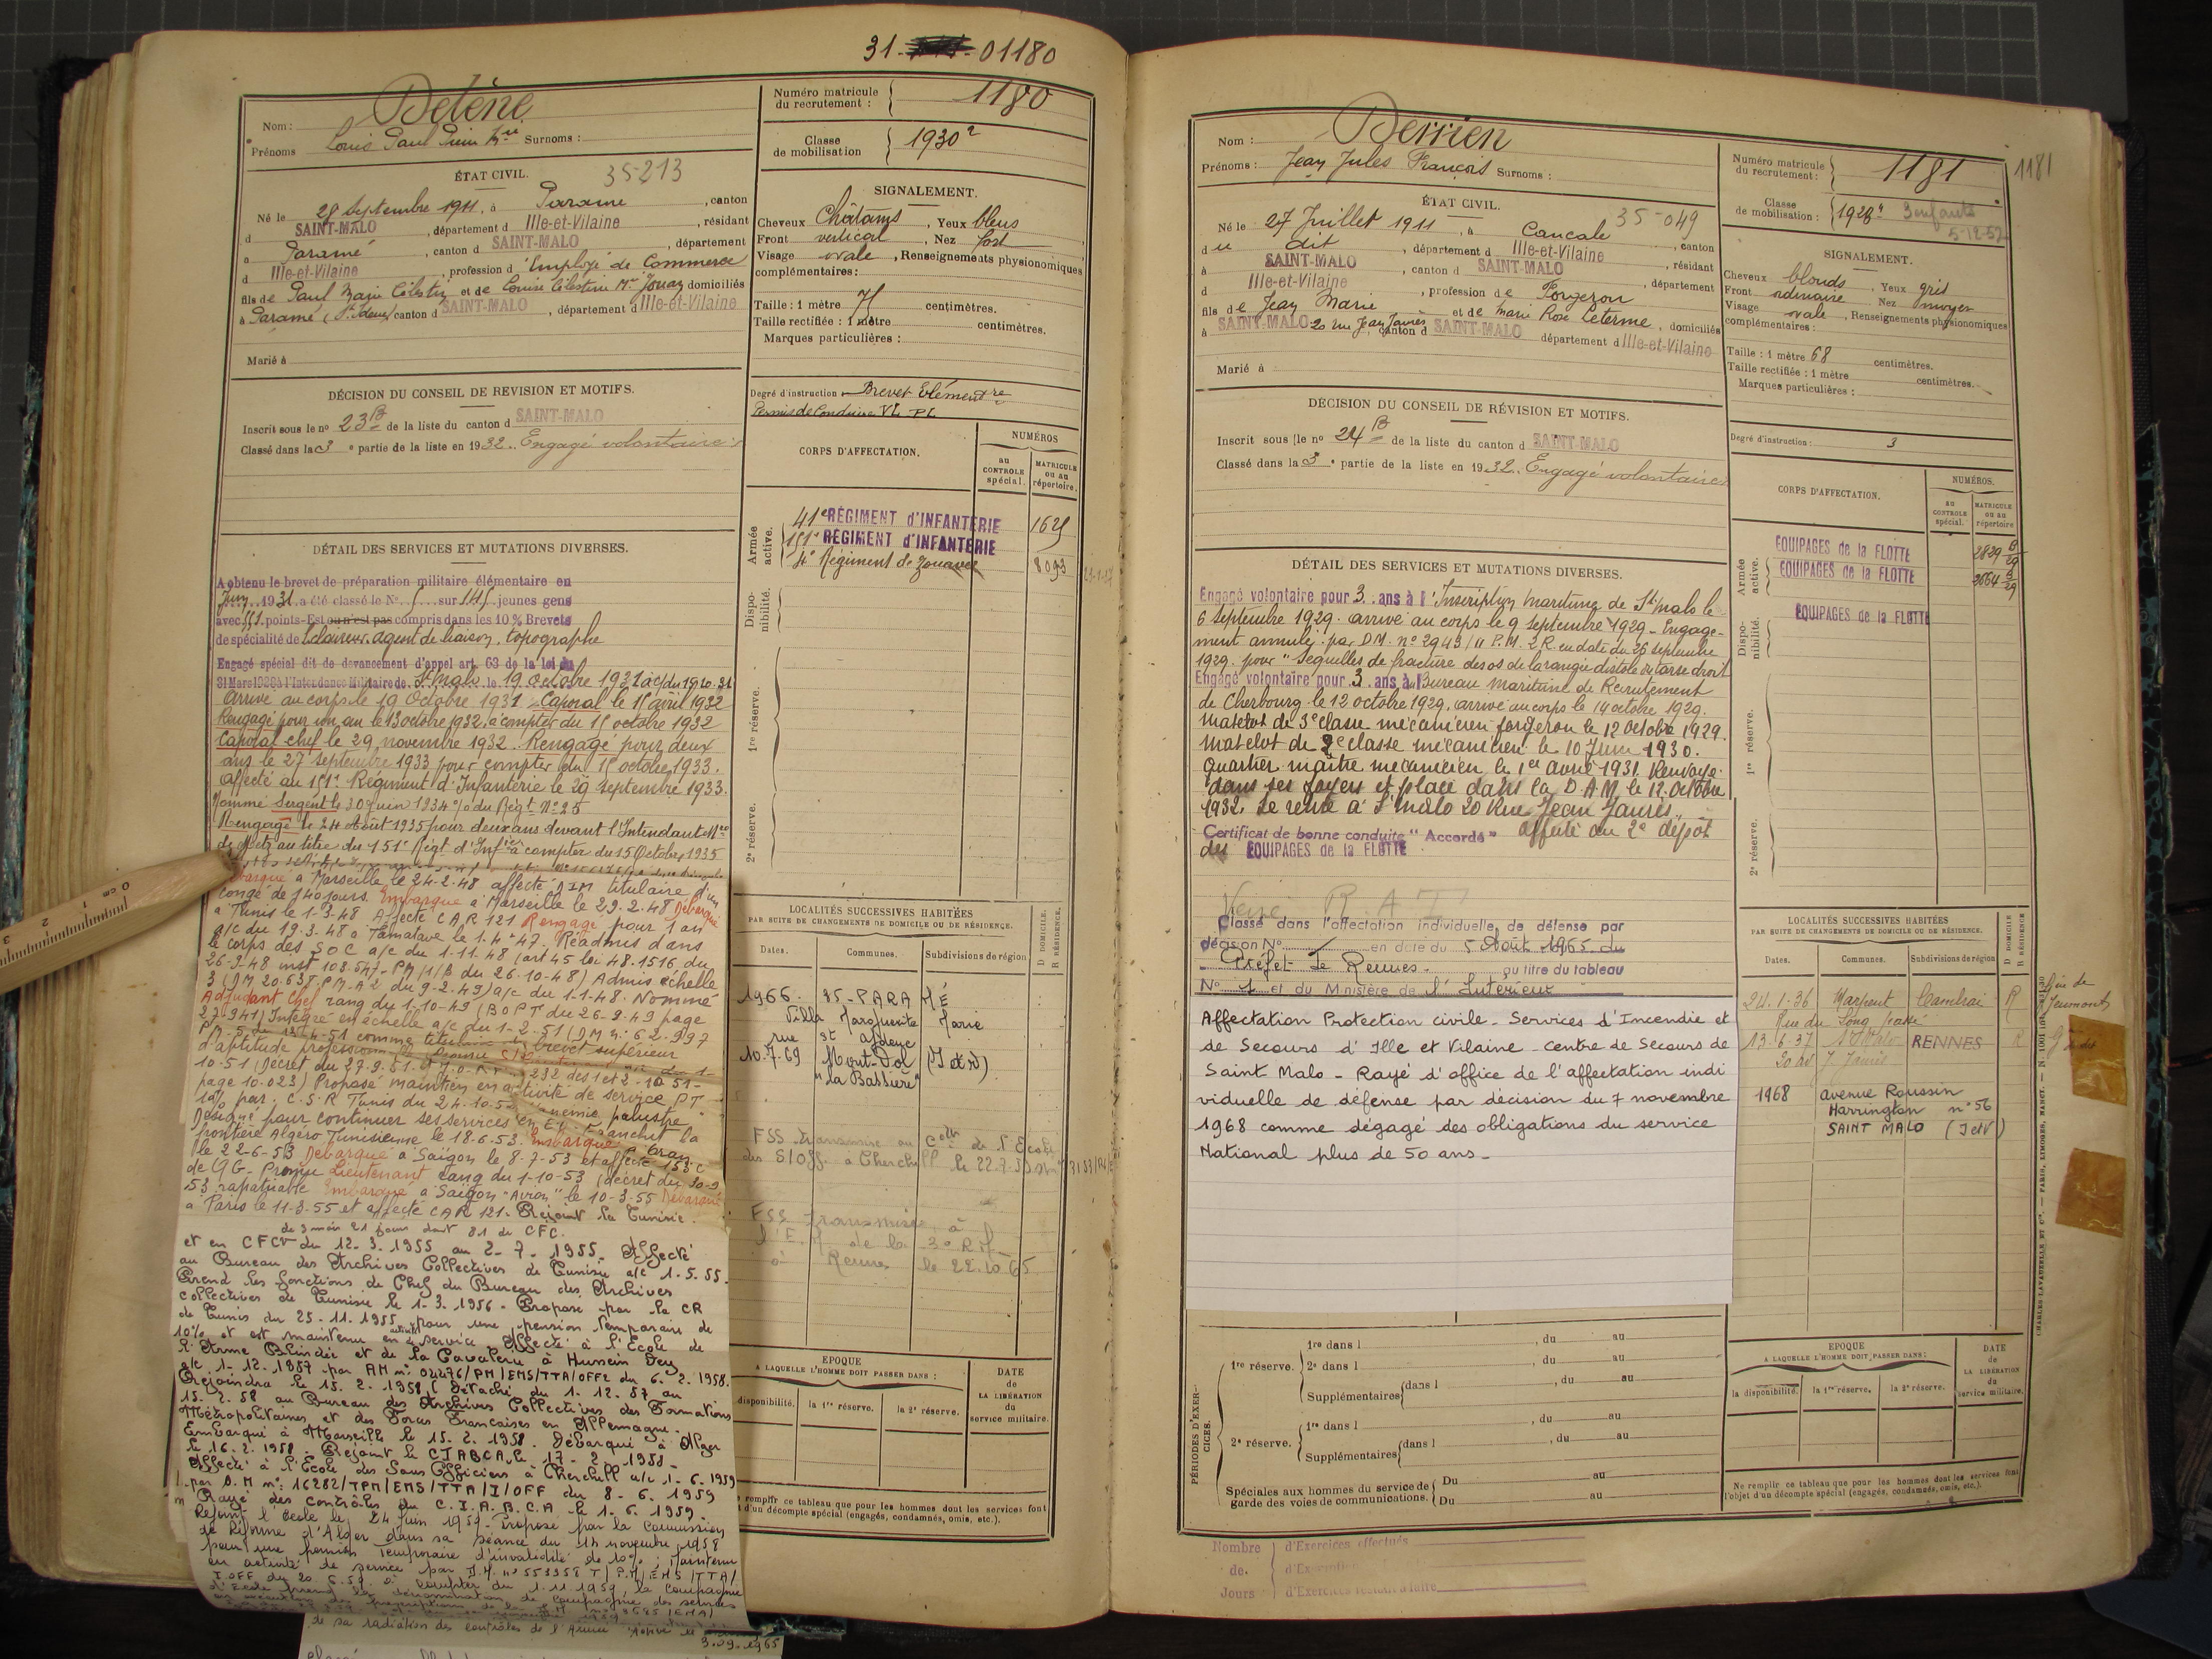 31- -01180
Nom : Delène
Prénoms Louis Paul Surnoms :
Numéro matricule du recrutement : 1180
Classe de mobilisation 1930
ÉTAT CIVIL.
35-213
Né le 28 Septembre 1911, à Paramé, canton
d SAINT-MALO, département d Ille-et-Vilaine, résidant
à Paramé, canton d SAINT-MALO, département
d Ille-et-Vilaine, profession d'Employé de Commerce
fils de Paul Marie Célestin et de Louise Célestine Mie Jouan domiciliés
à Paramé canton d SAINT-MALO, département d Ille-et-Vilaine
Marié à
SIGNALEMENT.
Cheveux Châtains, Yeux bleus
Front vertical, Nez fort
Visage ovale, Renseignements physionomiques
complémentaires :
Taille : 1 mètre centimètres.
Taille rectifiée : 1 mètre centimètres.
Marques particulières :
Degré d'instruction Brevet Elémentre
Permis de Conduire VL - PL
DÉCISION DU CONSEIL DE REVISION ET MOTIFS.
Inscrit sous le no 23 B de la liste du canton d SAINT-MALO
Classé dans la 3e partie de la liste en 1932. Engagé volontaire
CORPS D'AFFECTATION.
NUMÉROS
au CONTROLE spécial.
MATRICULE ou au répertoire.
Armée active.
41e RÉGIMENT d'INFANTERIE
151e RÉGIMENT d'INFANTERIE
4e Régiment de Zouaves 8093
Disponibilité.
1re réserve.
2e réserve.
DÉTAIL DES SERVICES ET MUTATIONS DIVERSES.
A obtenu le brevet de préparation militaire élémentaire en
Juin 1931 a été classé le No sur jeunes gens
avec points - Est ou n'est pas compris dans les 10 % Brevets
de spécialité de Eclaireur, agent de liaison, topographe
Engagé spécial dit de devancement d'appel art. 63 de la loi du
31 Mars 1928 à l'Intendance Militaire de St Malo le 19 octobre 1931 a/c du 19.10.31
Arrivé au corps le 19 octobre 1931 - Caporal le 15 avril 1932
Rengagé pour un an le 13 octobre 1932, à compter du 15 octobre 1932
Caporal chef le 29 novembre 1932. Rengagé pour deux
ans le 27 septembre 1933 pour compter du 15 octobre 1933.
Affecté au 151e Régiment d'Infanterie le 29 septembre 1933.
Nommé Sergent le 30 Juin 1934 o/o du Régt No 25
Rengagé le 24 Août 1935 pour deux ans devant l'Intendant Mre
de Metz au titre du 151e Régt d'Infie à compter du 15 Octobre 1935
à Marseille le 24-2-48 affecté DIM titulaire d'un
congé de 140 jours. Embarqué à Marseille le 29.2.48 Débarqué
à Tunis le 1-3-48 Affecté CAR 121 Rengagé pour 1 an
a/c du 19.3.48 à Tamatave le 1.4-47. Réadmis dans
le corps des SOC a/c du 1-11-48 (art 45 loi 48.1516 du
26-9-48 inst 108.547-PM/1/B du 26-10-48) Admis échelle
3 (DM 20.638.PM-A2 du 9-2-49) a/c du 1-1-48. Nommé
Adjudant Chef rang du 1-10-49 (BOPT du 26-9-49 page
27.941) Intégré en échelle a/c du 1-2-51 (DM n° 62.997
PM-5 du 4-51 comme titulaire brevet supérieur
d'aptitude
10-51 (Décret du 27.9.51. 232 des 1 et 2-10-51-
page 10.023) Proposé maintien en activité de service PT
10% par C.S.R Tunis du 24.10.5 palustre
Désigné pour continuer ses services en E.O. Franchit la
frontière Algéro Tunisienne le 18.6.53. Embarqué à Oran
le 22-6-53 Débarqué à Saïgon le 8-7-53 et affecté
de QG - Promu Lieutenant rang du 1-10-53 (décret du 30-9
53 rapatriable Embarqué à Saïgon "Avion" le 10-3-55 Débarqué
à Paris le 11-3-55 et affecté CAR 121- Rejoint la Tunisie.
de 3 mois 21 jours dont 81 de CFC.
et en CFCV du 12-3-1955 au 2-7-1955- Affecté
au Bureau des Archives Collectives de Tunisie a/c 1.5.55.
Prend les fonctions de Chef du Bureau des Archives
collectives de Tunisie le 1-3-1956 - Proposé par la CR
de Tunis du 25.11.1955 pour une pension temporaire de
10% et est maintenu en activité de service. Affecté à l'Ecole de
l'Arme Blindée et de la Cavalerie à Hussein Dey
a/c 1-12-1957 par AM n° 02276/PM/EMS/TTA/OFF2 du 6.2.1958.
Rejoindra le 15.2.1958 (Détaché du 1.12.57 au
15.2.58 au Bureau des Archives Collectives des Formations
Métropolitaines et des Forces Françaises en Allemagne.
Embarqué à Marseille le 15.2.1958. Débarqué à Alger
le 16.2.1958. Rejoint le CIABCA le 17-2-1958-
Affecté à l'Ecole des Sous Officiers à Cherchell a/c 1-6-1959
par D.M n°: 16282/TPM/EMS/TTA/I/OFF du 8-6-1959
Rayé des contrôles du C.I.A.B.C.A le 1.6.1959.
Rejoint l'école le 24 juin 1959. Proposé par la Commission
de Réforme d'Alger dans sa séance du 14 novembre 1958
pour une pension Temporaire d'invalidité de 10%; Maintenu
en activité de service par D.M. n° 553958 T/P.M/EMS/TTA/
I.OFF du 20.5.59. A compter du 1.11.1959, la Compagnie
d'Ecole prend la dénomination de Compagnie des services
de sa radiation des contrôles de l'Armée Active le
3.09.1965
LOCALITÉS SUCCESSIVES HABITÉES
PAR SUITE DE CHANGEMENTS DE DOMICILE OU DE RÉSIDENCE.
D DOMICILE. R RÉSIDENCE.
Dates. Communes. Subdivisions de région
1966. 35-PARAMÉ
Villa Marguerite Marie
rue St Ideuc
10.7.69 Mont-Dol (I et V)
"la Bassière"
FSS transmise au Coth de l'Ecole
des S/Off. à Cherchell le 22.7.59
FSS transmise à
l'E.M de la 3e RM
à Rennes le 22.10.65
EPOQUE
A LAQUELLE L'HOMME DOIT PASSER DANS :
disponibilité. la 1re réserve. la 2e réserve.
DATE de LA LIBÉRATION du service militaire.
remplir ce tableau que pour les hommes dont les services font
d'un décompte spécial (engagés, condamnés, omis, etc.).
Nom : Berrien
Prénoms : Jean Jules François Surnoms :
Numéro matricule du recrutement : 1181
1181
Classe de mobilisation : 1928 3 enfants
5-12-52
ÉTAT CIVIL.
35-049
Né le 27 Juillet 1911, à Cancale
d u dit, département d Ille-et-Vilaine, canton
à SAINT-MALO, canton d SAINT-MALO, résidant
d Ille-et-Vilaine, profession de Forgeron, département
fils de Jean Marie et de Marie Rose Leterme, domiciliés
à SAINT-MALO 20 rue Jean Jaurès, canton d SAINT-MALO département d Ille-et-Vilaine
Marié à
SIGNALEMENT.
Cheveux blonds, Yeux gris
Front ordinaire, Nez moyen
Visage ovale, Renseignements physionomiques
complémentaires :
Taille : 1 mètre 68 centimètres.
Taille rectifiée : 1 mètre centimètres.
Marques particulières :
Degré d'instruction : 3
DÉCISION DU CONSEIL DE RÉVISION ET MOTIFS.
Inscrit sous le no 24 B de la liste du canton d SAINT-MALO
Classé dans la 3e partie de la liste en 1932. Engagé volontaire
CORPS D'AFFECTATION.
NUMÉROS.
au CONTROLE spécial.
MATRICULE ou au répertoire
Armée active.
EQUIPAGES de la FLOTTE 2829 B/29
EQUIPAGES de la FLOTTE
Disponibilité.
EQUIPAGES de la FLOTTE
1re réserve.
2e réserve.
DÉTAIL DES SERVICES ET MUTATIONS DIVERSES.
Engagé volontaire pour 3 ans à l'Inscription Maritime de St Malo le
6 septembre 1929. arrivé au corps le 9 septembre 1929 - Engage-
ment annulé par DM. no 2943/11 P.M. 2 R. en date du 26 septembre
1929. pour "Sequelles de fracture des os de la rangée distale du tarse droit
Engagé volontaire pour 3 ans à Bureau Maritime de Recrutement
de Cherbourg le 12 octobre 1929. arrivé au corps le 14 octobre 1929.
Matelot de 3e classe mécanicien forgeron le 12 octobre 1929.
Matelot de 2e classe mécanicien le 10 Juin 1930.
Quartier maître mécanicien le 1er avril 1931. Renvoyé
dans ses foyers et placé dans la D.A.M. le 12 octobre
1932. Se retire à St Malo 20 Rue Jean Jaurès.
Certificat de bonne conduite "Accordé" affecté au 2e dépôt
des EQUIPAGES de la FLOTTE
Versé R.A.T
Classé dans l'affectation individuelle de défense par
décision No en date du 5 Août 1965 du
Préfet de Rennes. au titre du tableau
No 1 et du Ministère de l'Intérieur
Affectation Protection civile - Services d'Incendie et
de Secours d'Ille et Vilaine - Centre de Secours de
Saint Malo - Rayé d'office de l'affectation indi
viduelle de défense par décision du 7 novembre
1968 comme dégagé des obligations du service
National plus de 50 ans -
LOCALITÉS SUCCESSIVES HABITÉES
PAR SUITE DE CHANGEMENTS DE DOMICILE OU DE RÉSIDENCE.
D DOMICILE R RÉSIDENCE
Dates. Communes. Subdivisions de région
24.1-36 Marpent Cambrai R
Rue du Long
13.6.37 St Malo RENNES R
20 rue J Jaurès
1968 avenue Roussin
Harrington n° 56
SAINT MALO (I et V)
Gie de
Jeumont
CHARLES-LAVAUZELLE ET Cie. — PARIS, LIMOGES, NANCY.
PÉRIODES D'EXERCICES.
1re réserve. 1re dans l , du au
2e dans l , du au
Supplémentaires dans l , du au
2e réserve. 1re dans l , du au
Supplémentaires dans l , du au
Spéciales aux hommes du service de garde des voies de communications. Du au
Du au
EPOQUE
A LAQUELLE L'HOMME DOIT PASSER DANS :
la disponibilité. la 1re réserve. la 2e réserve.
DATE de LA LIBÉRATION du service militaire.
Ne remplir ce tableau que pour les hommes dont les services font
l'objet d'un décompte spécial (engagés, condamnés, omis, etc.).
Nombre d'Exercices effectués
de.
Jours d'Exercices restant à faire
0 cm 1 2 3